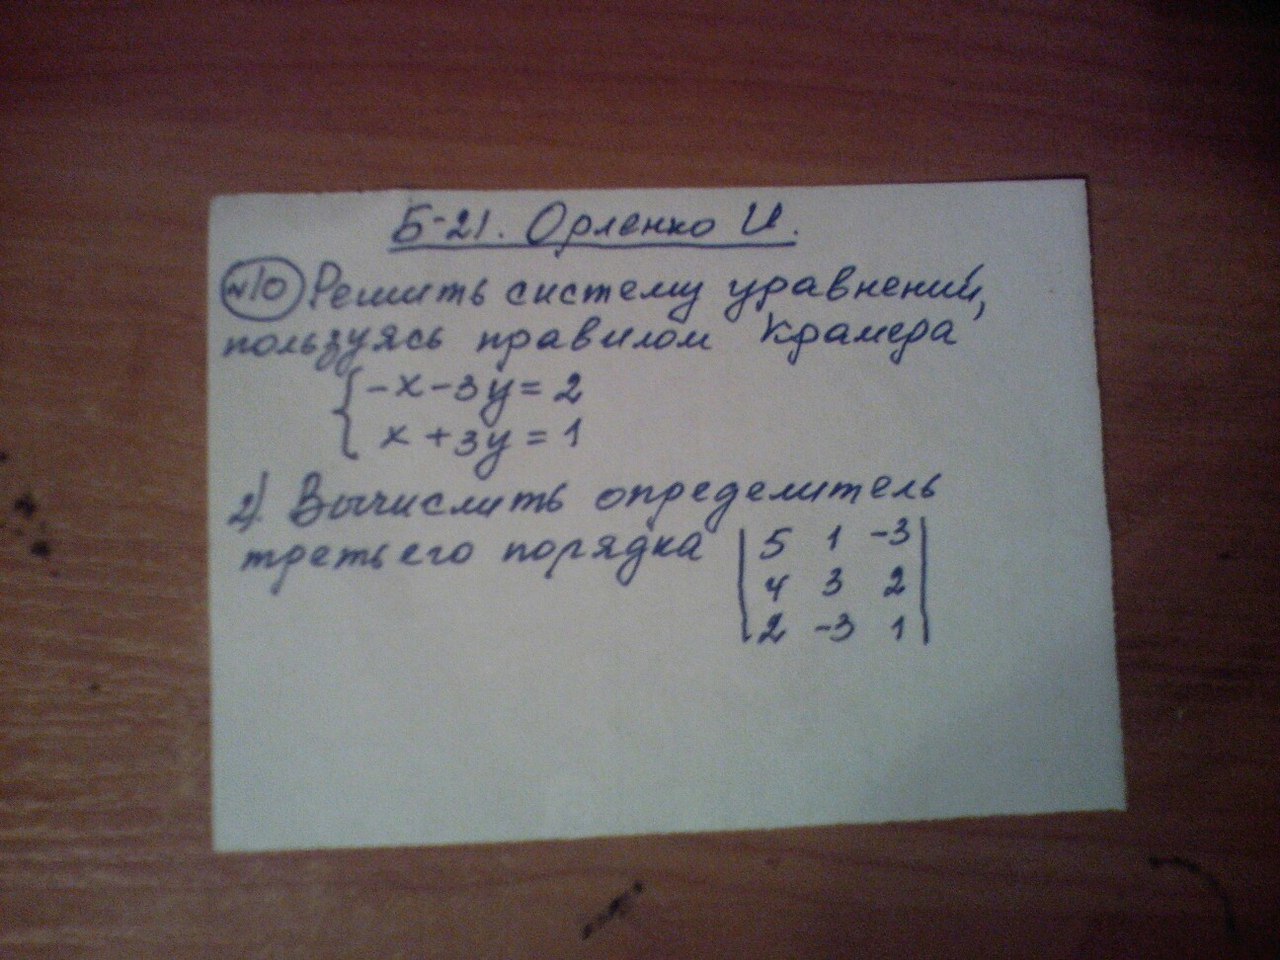 Б-21. Орленко И.
№10 Решить систему уравнений,
пользуясь правилом Крамера
{ -x - 3y = 2
x + 3y = 1
2) Вычислить определитель
третьего порядка | 5 1 -3 |
4 3 2
2 -3 1